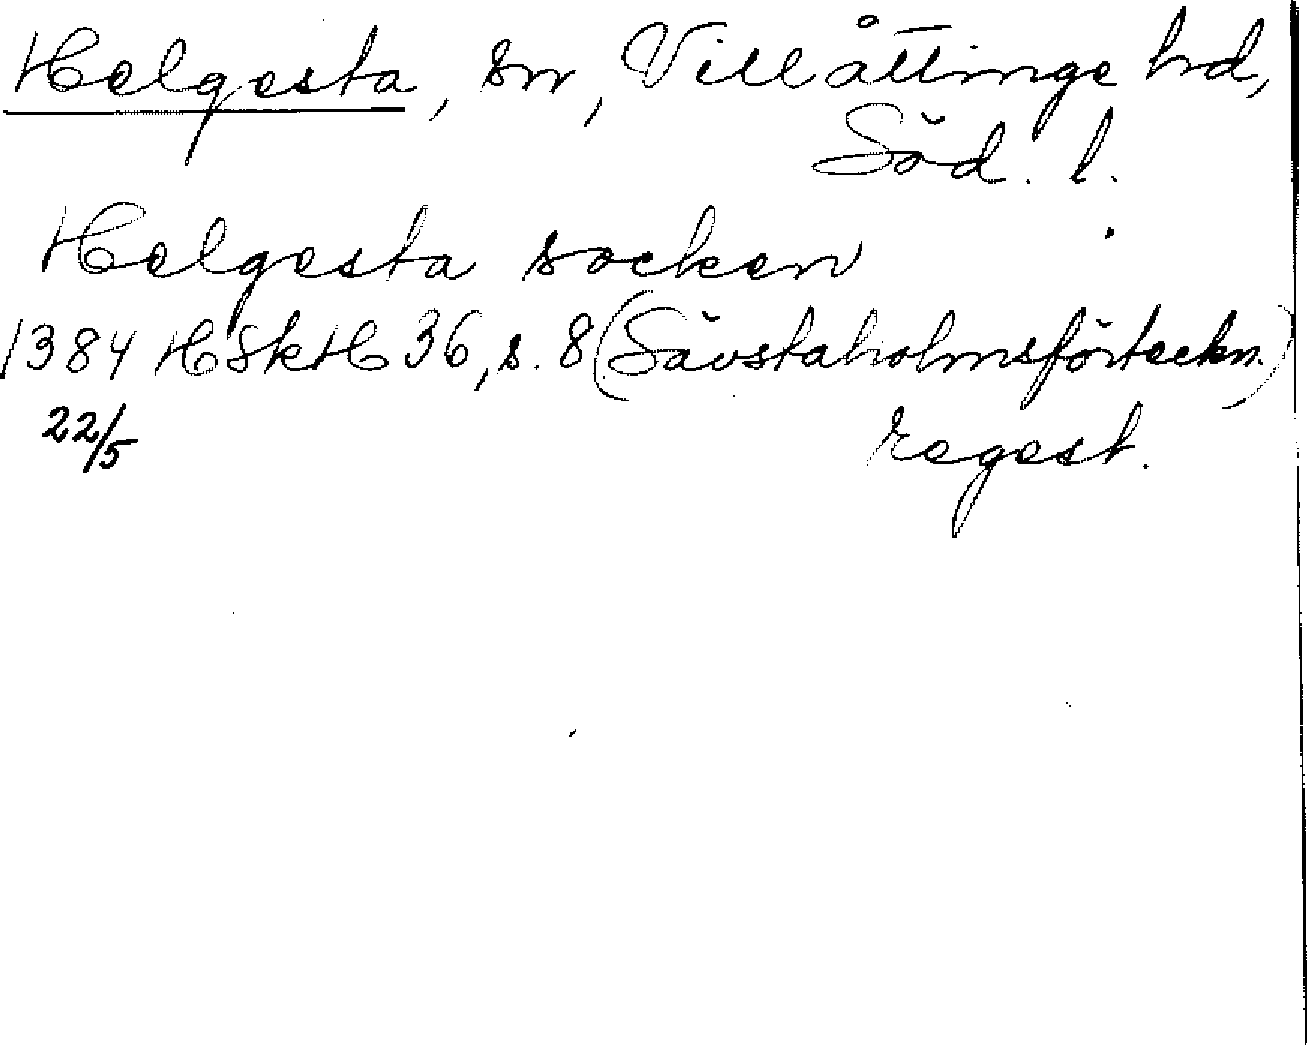 Helgesta, sn, Villåttinge hd,
Söd. l.
Helgesta socken
1384 HSkH 36, s. 8 (Sävstaholmsförteckn.)
22/5 regest.